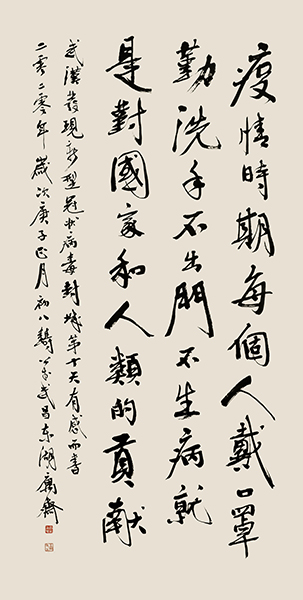 疫情時期每個人戴口罩
勤洗手不出門不生病就
是對國家和人類的貢獻
武漢發現新型冠狀病毒封城第十天有感而書
二零二零年歲次庚子正月初八鑄公書武昌東湖寓齋